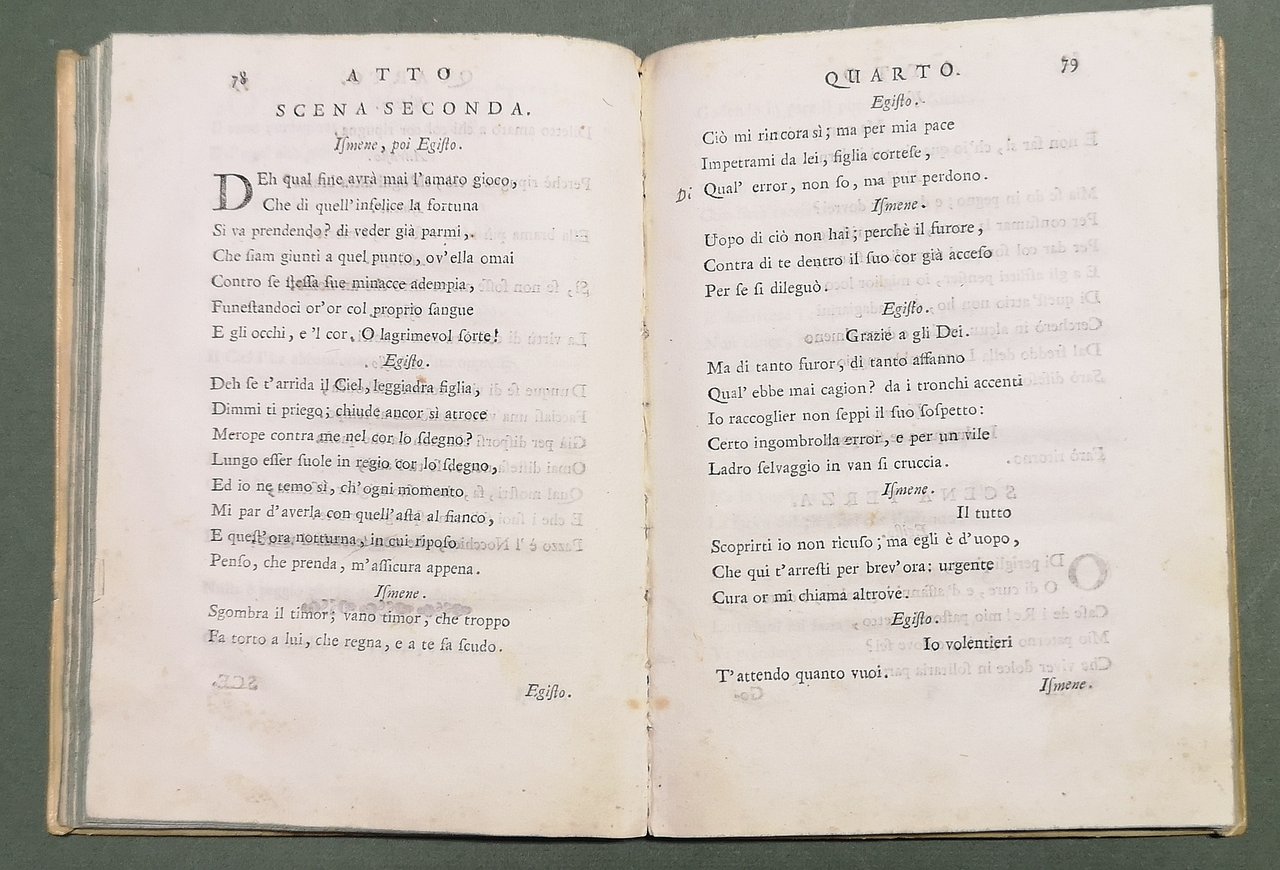 78
ATTO
SCENA SECONDA.
Iſmene, poi Egiſto.
DEh qual fine avrà mai l'amaro gioco,
Che di quell'infelice la fortuna
Si va prendendo? di veder già parmi,
Che ſiam giunti a quel punto, ov'ella omai
Contro ſe ſteſſa ſue minacce adempia,
Funeſtandoci or'or col proprio ſangue
E gli occhi, e 'l cor. O lagrimevol ſorte!
Egiſto.
Deh ſe t'arrida il Ciel, leggiadra figlia,
Dimmi ti priego; chiude ancor sì atroce
Merope contra me nel cor lo ſdegno?
Lungo eſſer ſuole in regio cor lo ſdegno,
Ed io ne temo sì, ch'ogni momento
Mi par d'averla con quell'aſta al fianco,
E queſt'ora notturna, in cui ripoſo
Penſo, che prenda, m'aſſicura appena.
Iſmene.
Sgombra il timor; vano timor, che troppo
Fa torto a lui, che regna, e a te fa ſcudo.
Egiſto.
QUARTO.
79
Egiſto.
Ciò mi rincora sì; ma per mia pace
Impetrami da lei, figlia corteſe,
Di Qual' error, non ſo, ma pur perdono.
Iſmene.
Uopo di ciò non hai; perchè il furore,
Contra di te dentro il ſuo cor già acceſo
Per ſe ſi dileguò.
Egiſto.
Grazie a gli Dei.
Ma di tanto furor, di tanto affanno
Qual' ebbe mai cagion? da i tronchi accenti
Io raccoglier non ſeppi il ſuo ſoſpetto:
Certo ingombrolla error, e per un vile
Ladro ſelvaggio in van ſi cruccia.
Iſmene.
Il tutto
Scoprirti io non ricuſo; ma egli è d'uopo,
Che qui t'arreſti per brev'ora: urgente
Cura or mi chiama altrove.
Egiſto.
Io volentieri
T'attendo quanto vuoi.
Iſmene.